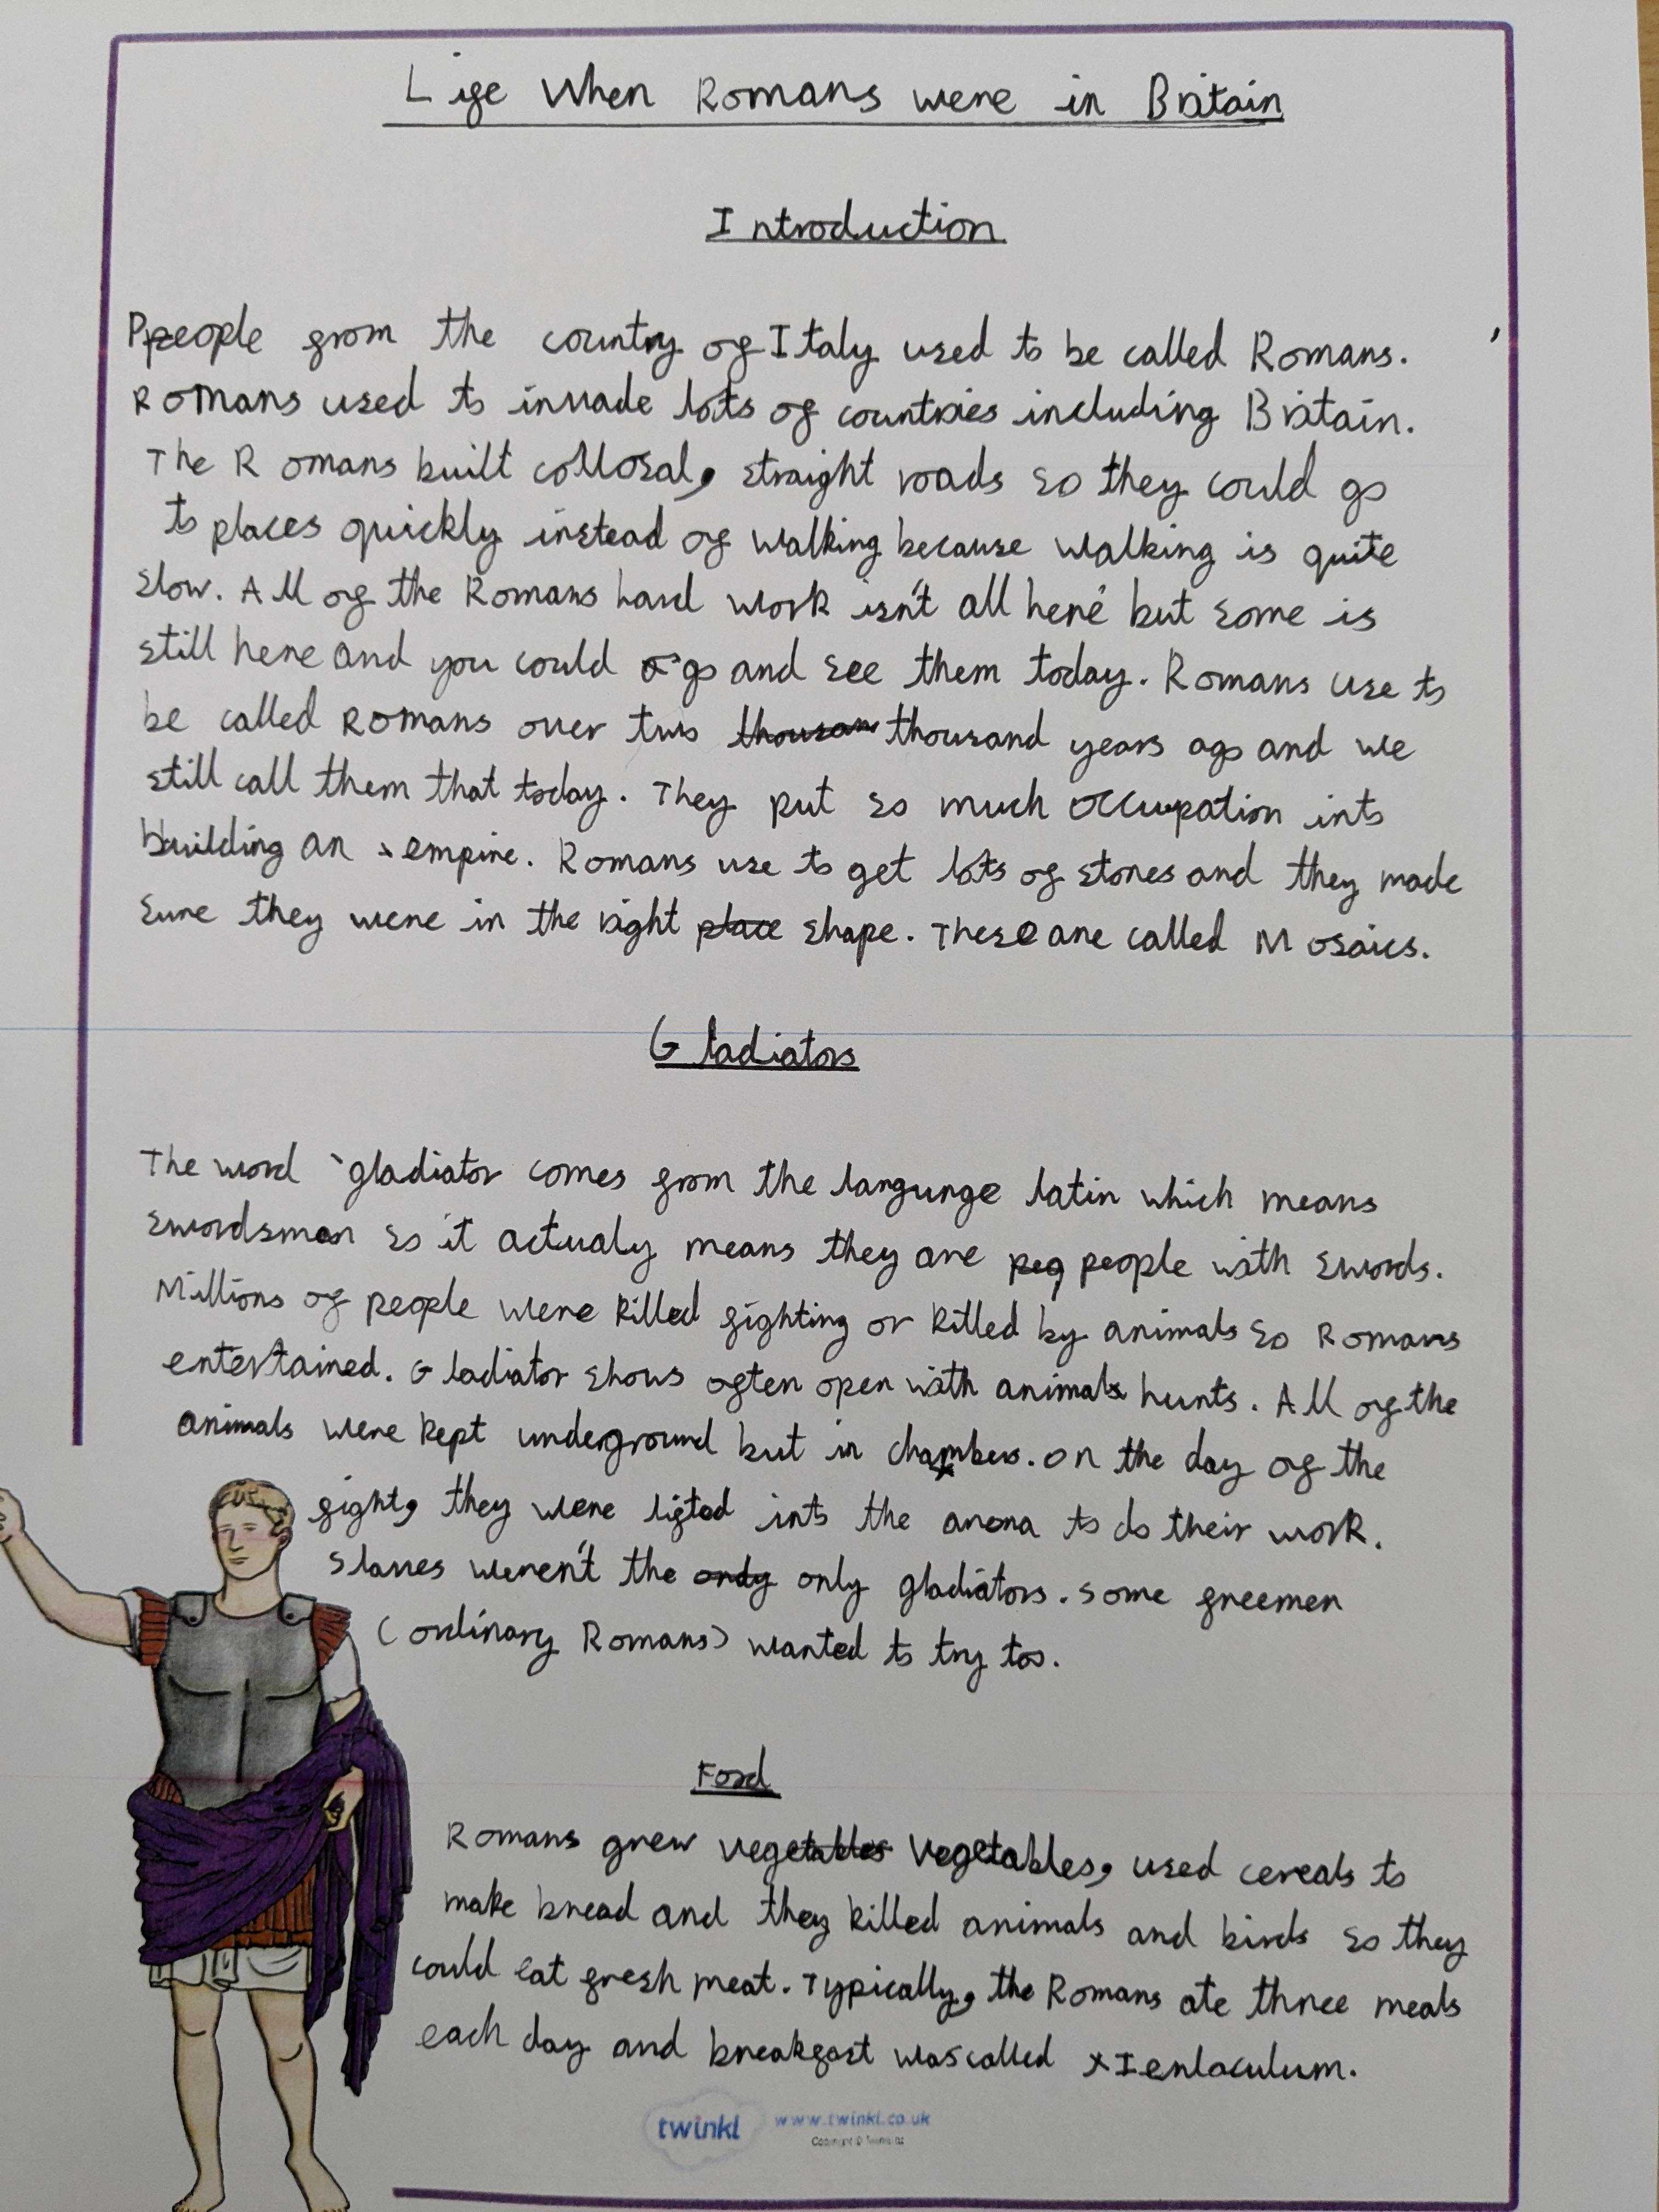 Life When Romans were in Britain
Introduction
People from the country of Italy used to be called Romans.
Romans used to invade lots of countries including Britain.
The Romans built collosal, straight roads so they could go
to places quickly instead of walking because walking is quite
slow. All of the Romans hard work isn't all here but some is
still here and you could go and see them today. Romans use to
be called Romans over two thousan thousand years ago and we
still call them that today. They put so much occupation into
building an empire. Romans use to get lots of stones and they made
sure they were in the right place shape. These are called Mosaics.
Gladiators
The word 'gladiator comes from the langunge latin which means
swordsman so it actualy means they are peo people with swords.
Millions of people were killed fighting or killed by animals so Romans
entertained. Gladiator shows often open with animals hunts. All of the
animals were kept underground but in chambers. On the day of the
fight, they were lifted into the arena to do their work.
Slaves weren't the ondy only gladiators. Some freemen
(ordinary Romans) wanted to try too.
Food
Romans grew vegetables vegetables, used cereals to
make bread and they killed animals and birds so they
could eat fresh meat. Typically, the Romans ate three meals
each day and breakfast was called Ientaculum.
twinkl www.twinkl.co.uk